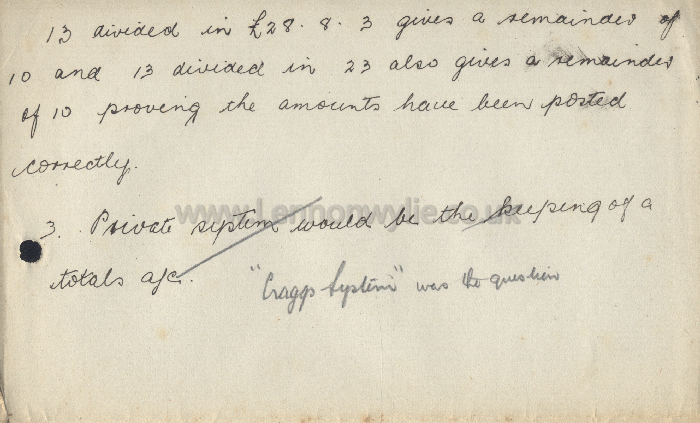 13 divided in £28. 8. 3 gives a remainder of
10 and 13 divided in 23 also gives a remainder
of 10 proving the amounts have been posted
correctly.
www.Lennonwylie.co.uk
3. Private system would be the keeping of a
totals a/c.
"Craggs System" was the question